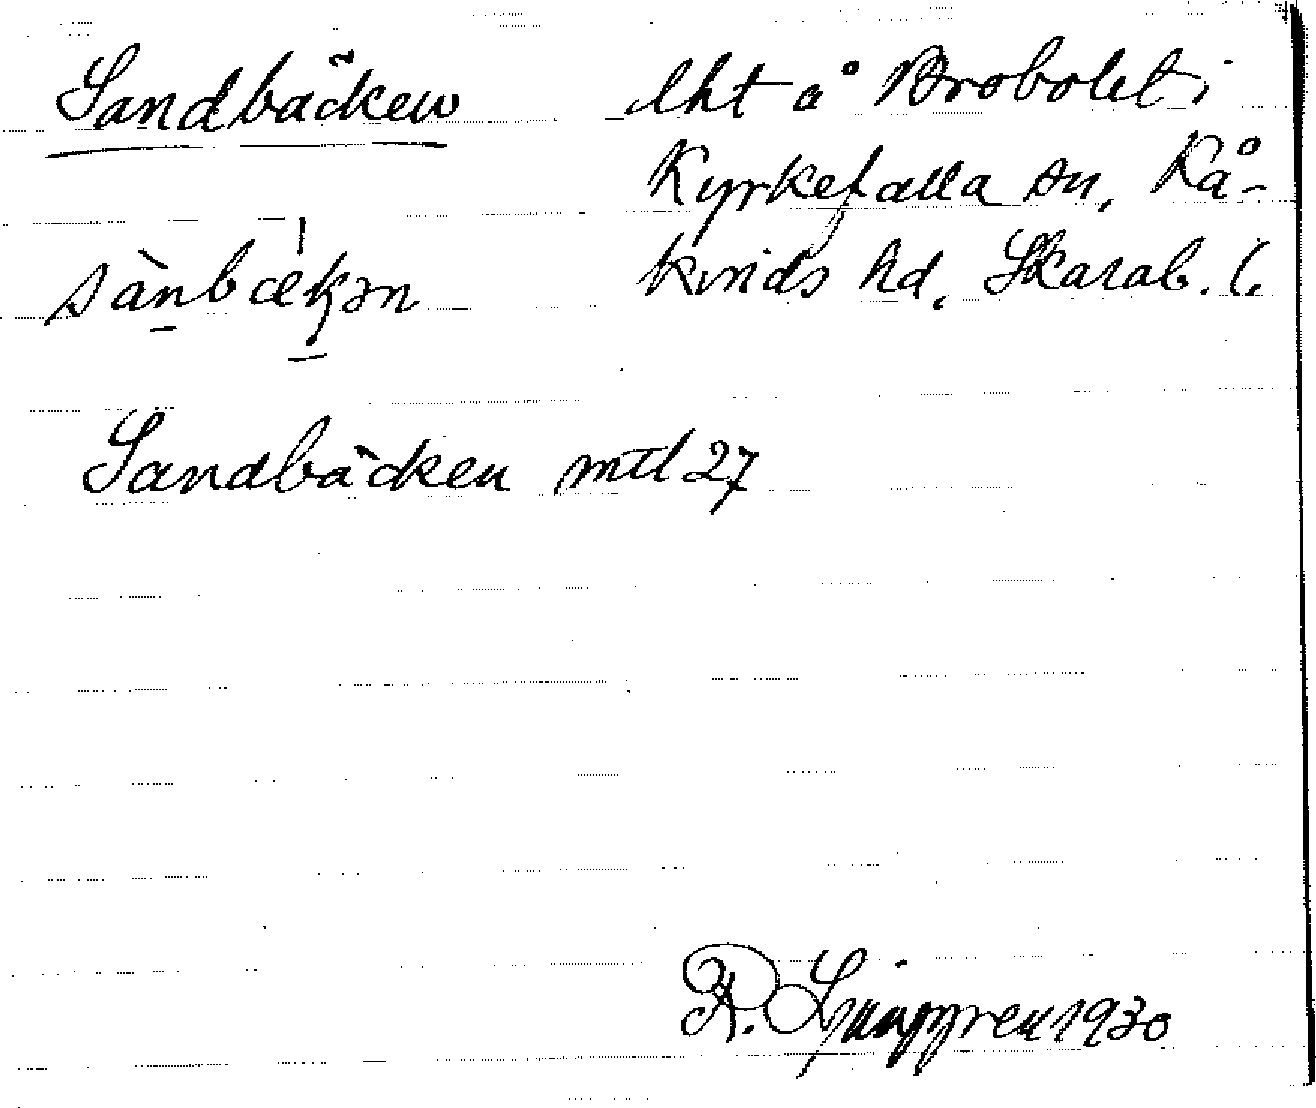 Sandbäcken lht å Brobolet i
Kyrkefalla sn, Kå-
kinds hd, Skarab. l.
sànbækən
Sandbäcken mtl 27
R. Ljunggren 1930